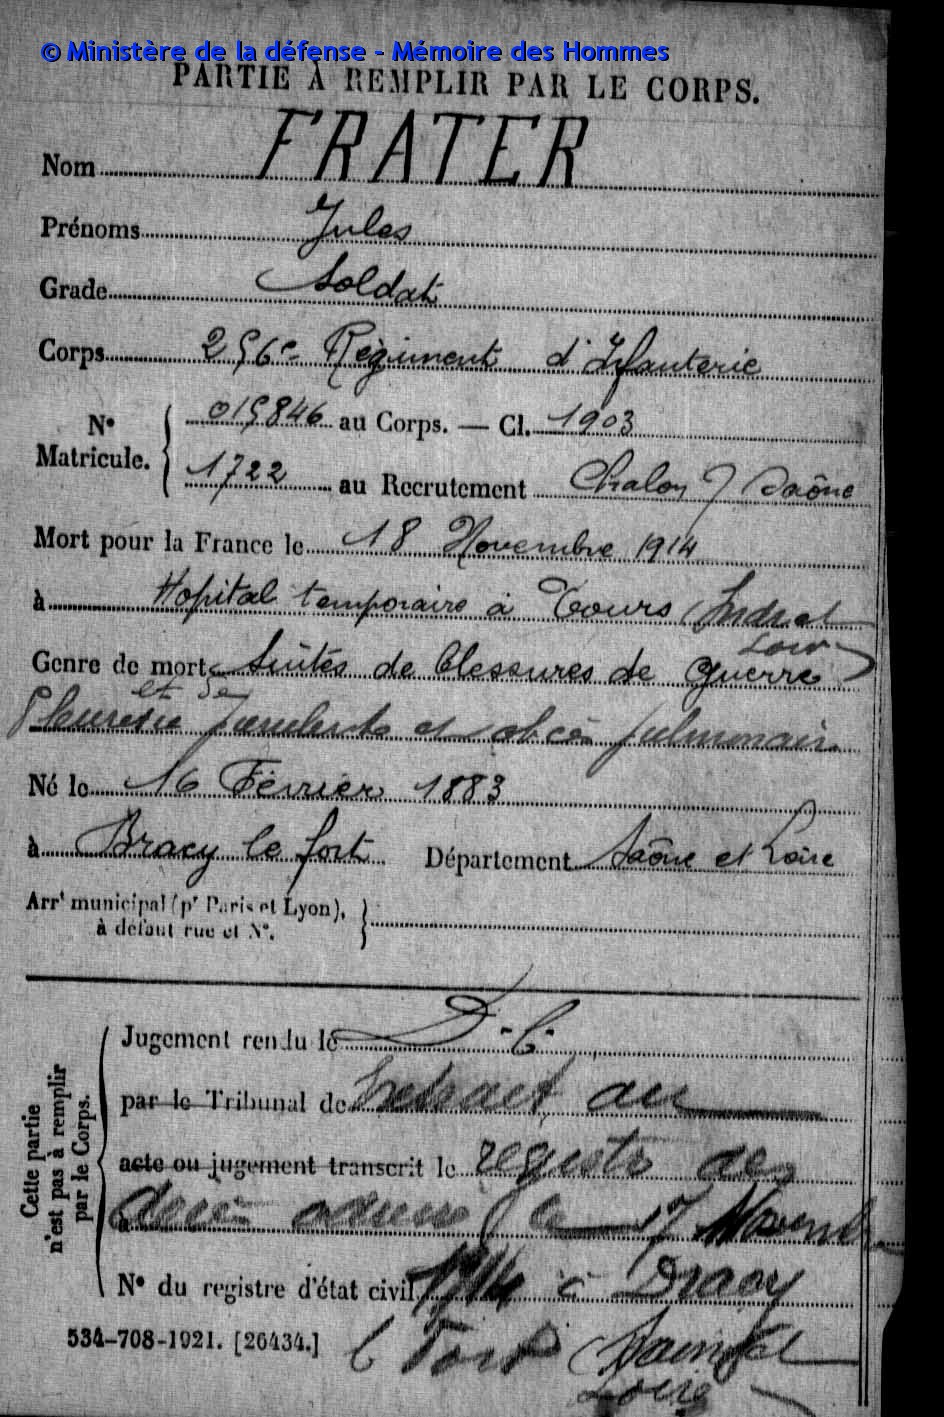 © Ministère de la défense - Mémoire des Hommes
PARTIE À REMPLIR PAR LE CORPS.
Nom FRATER
Prénoms Jules
Grade Soldat
Corps 256e Régiment d'Infanterie
N° Matricule. 015846 au Corps. — Cl. 1903
1722 au Recrutement Chalon s/ Saône
Mort pour la France le 18 Novembre 1914
à Hopital temporaire à Tours (Indre et
Loire)
Genre de mort Suites de blessures de Guerre
et de
Pleurésie purulente et abcès pulmonaire
Né le 16 Février 1883
à Bracy le fort Département Saône et Loire
Arrt municipal (pr Paris et Lyon),
à défaut rue et N°.
Cette partie n'est pas à remplir par le Corps.
Jugement rendu le D.C.
par le Tribunal de extrait du
acte ou jugement transcrit le registre des
à décès adressé le 17 Novembre
N° du registre d'état civil 1914 à Dracy
le Fort Saône et
Loire
534-708-1921. [26434.]